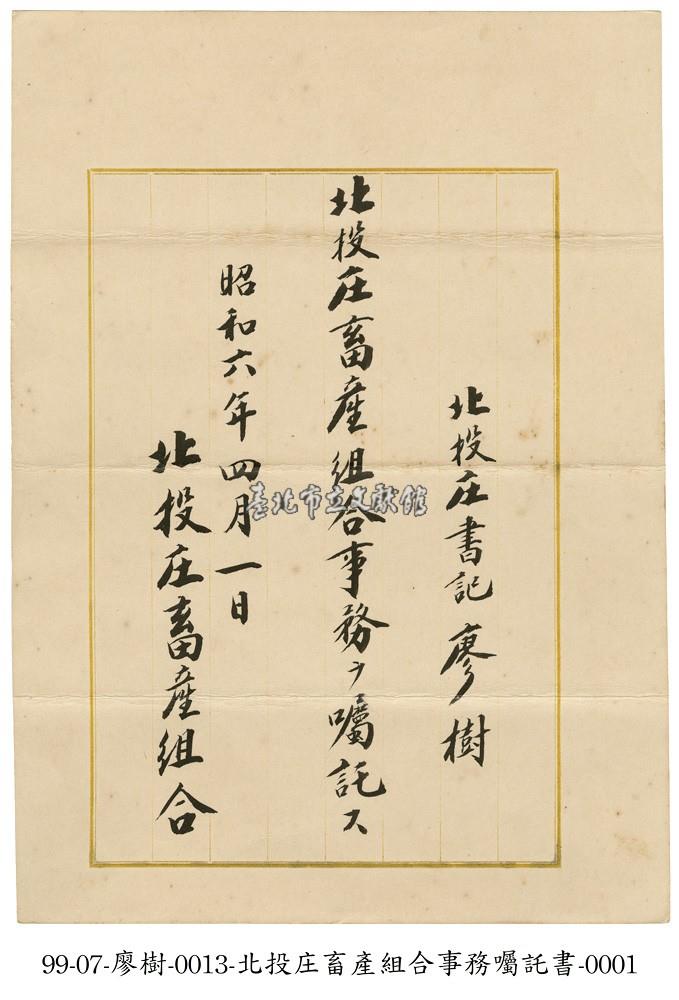 北投庄書記 廖樹
北投庄畜産組合事務ヲ囑託ス
昭和六年四月一日
北投庄畜産組合
臺北市立文獻館
99-07-廖樹-0013-北投庄畜產組合事務囑託書-0001